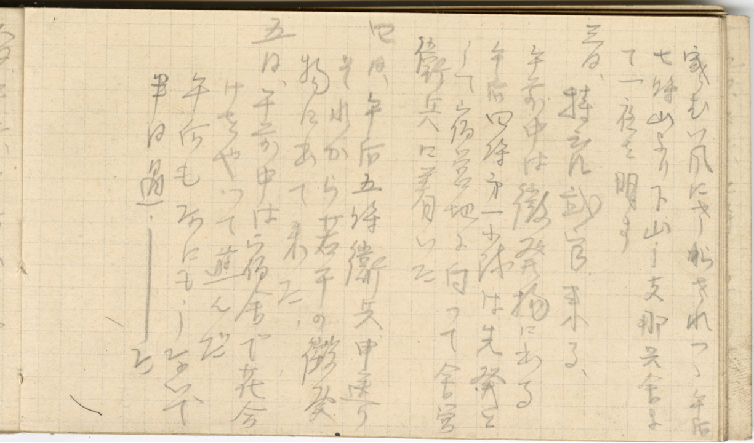 寒むい風にさらされつゝ午后
七時山より下山し支那兵舎に
て一夜を明す
三日、特務教官来る、
午前中は徴発物に出る
午后四時第一小隊は先発と
して宿営地に向って舎営
衛兵に着いた
四日、午后五時衛兵申送り
それから若干の徴発
物にあて来た、
五日、午前中は宿舎で花合
けをやって遊んだ
午后もなにもしないで
半日過した